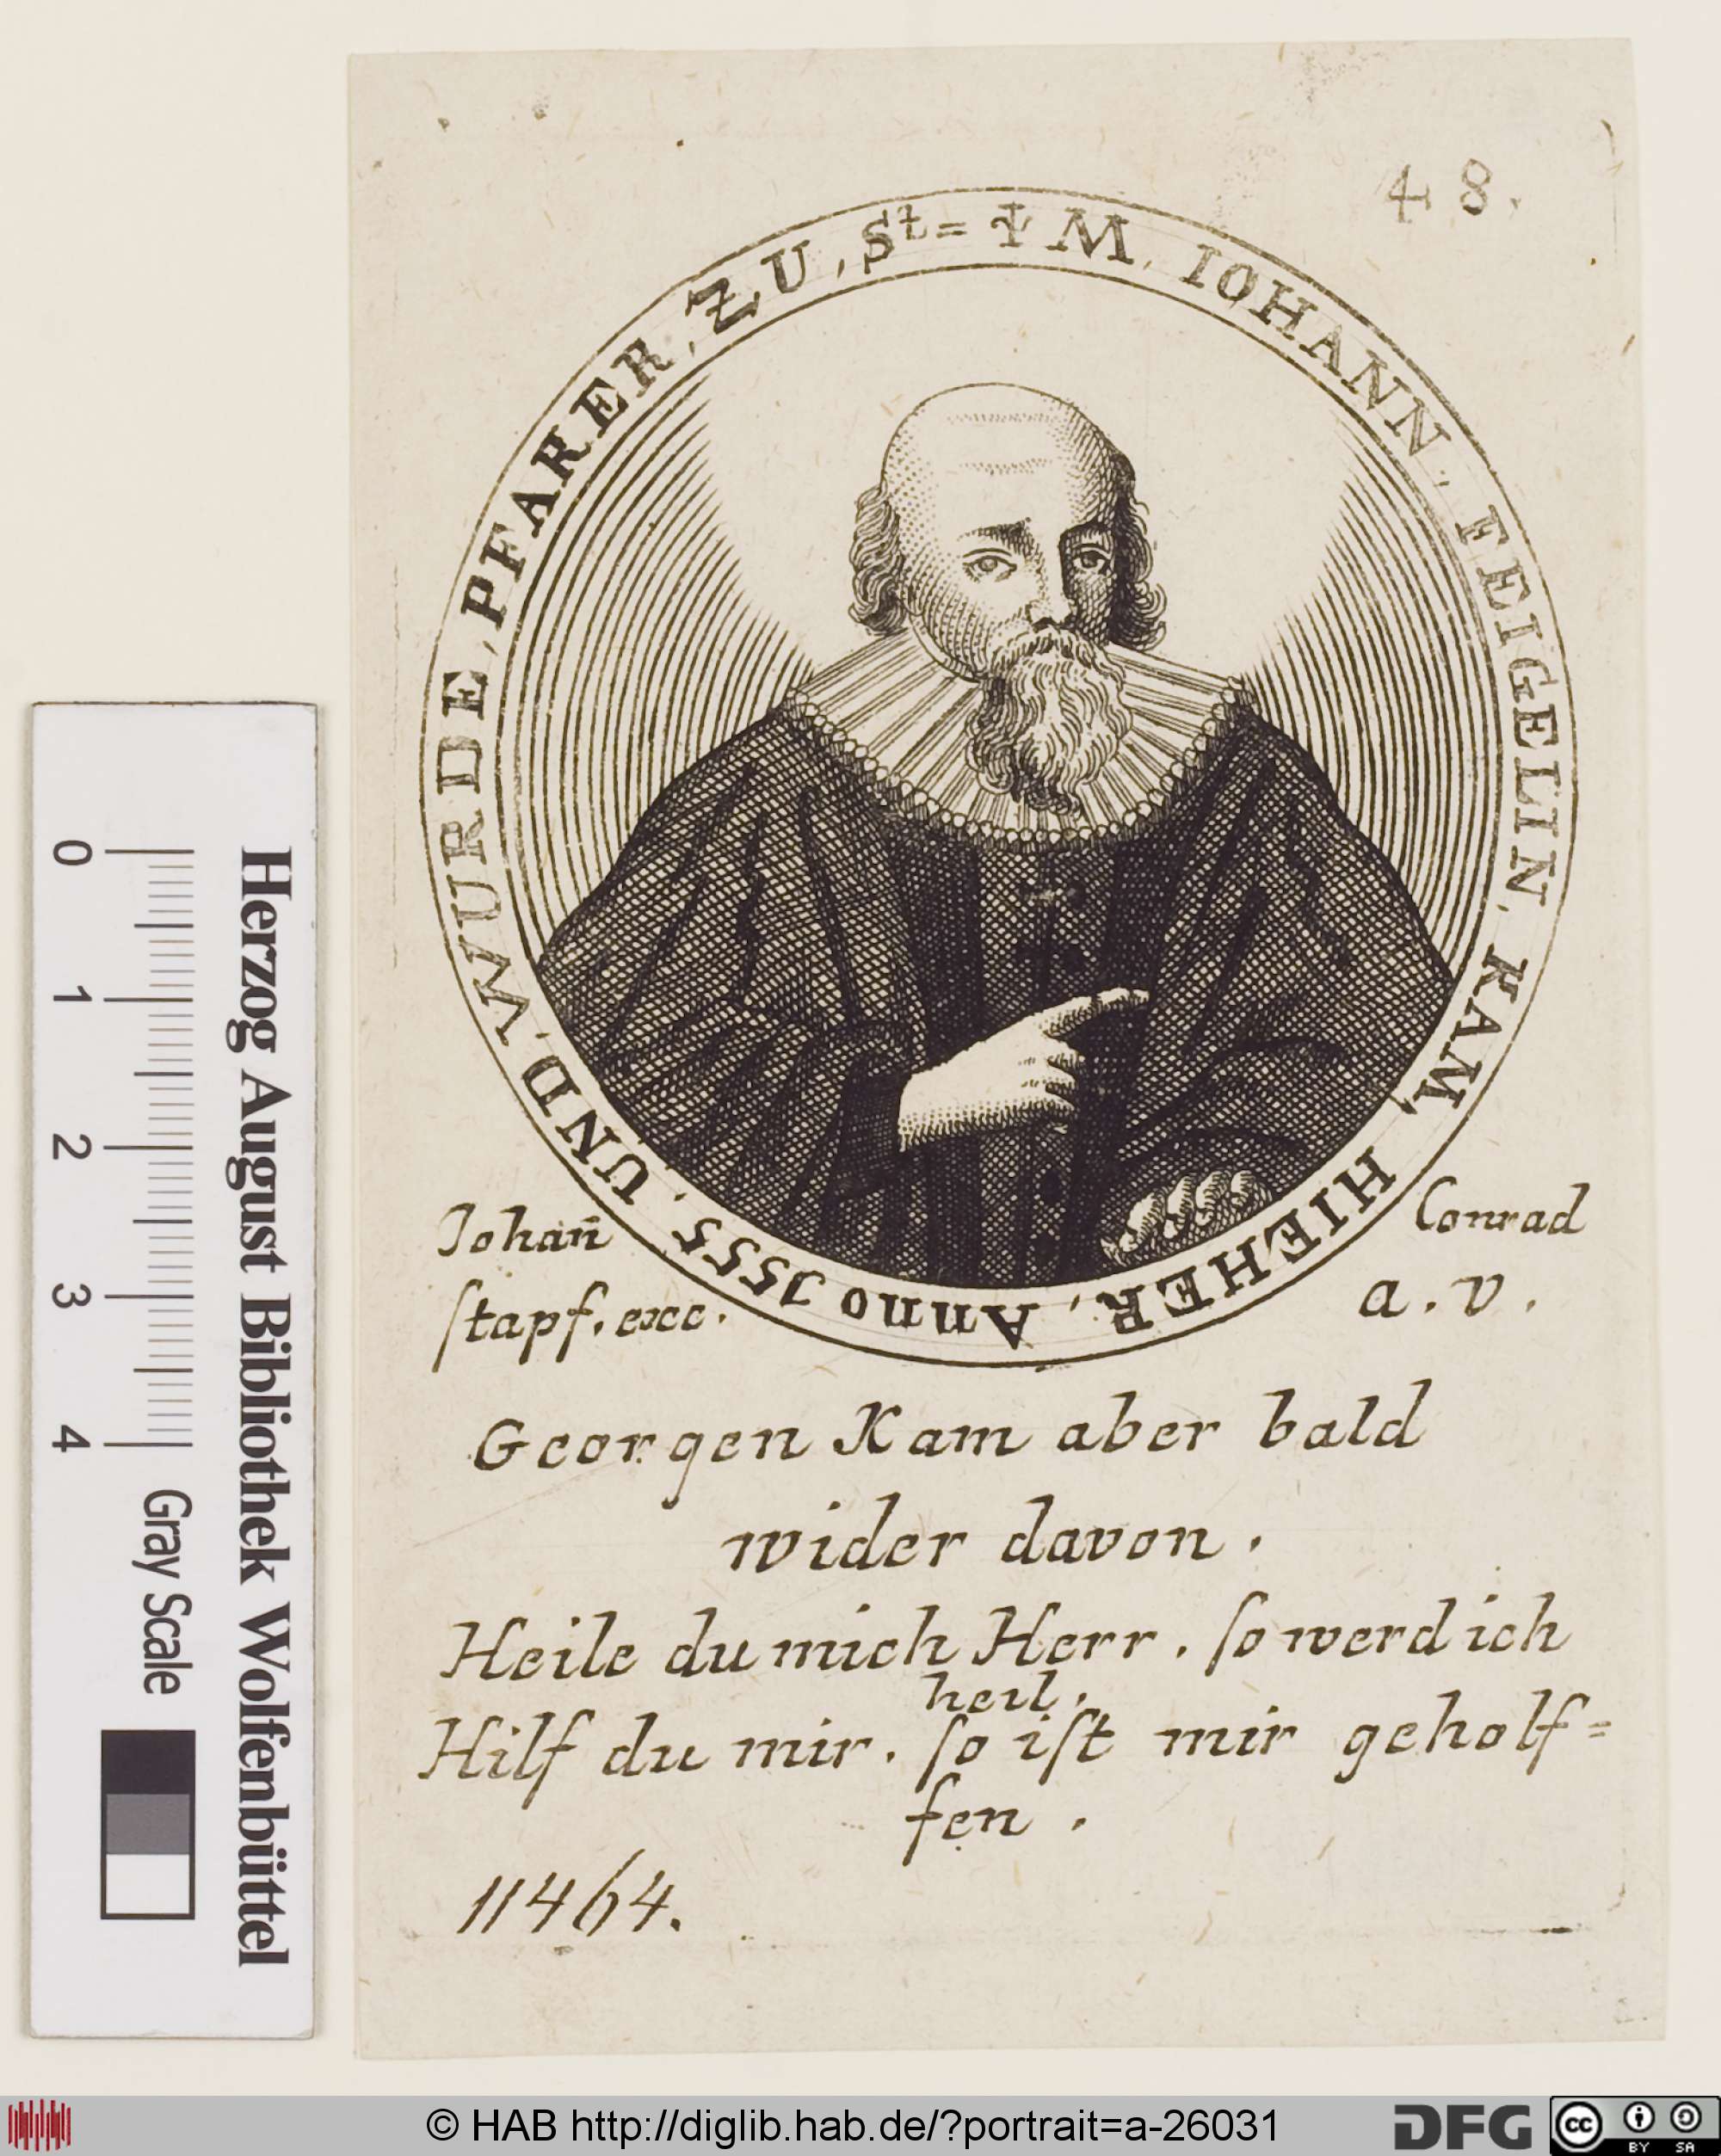 48.
M. IOHANN. FEIGELIN. KAM, HIEHER, Anno 1555. UND. WURDE, PFARER, ZU, St=
Johañ
stapf. exc.
Conrad
a. v.
Georgen Kam aber bald
wider davon.
Heile du mich Herr. so werd ich
heil.
Hilf du mir. so ist mir geholf=
fen.
11464.
Herzog August Bibliothek Wolfenbüttel
0 1 2 3 4 Gray Scale
© HAB http://diglib.hab.de/?portrait=a-26031
DFG
cc BY SA